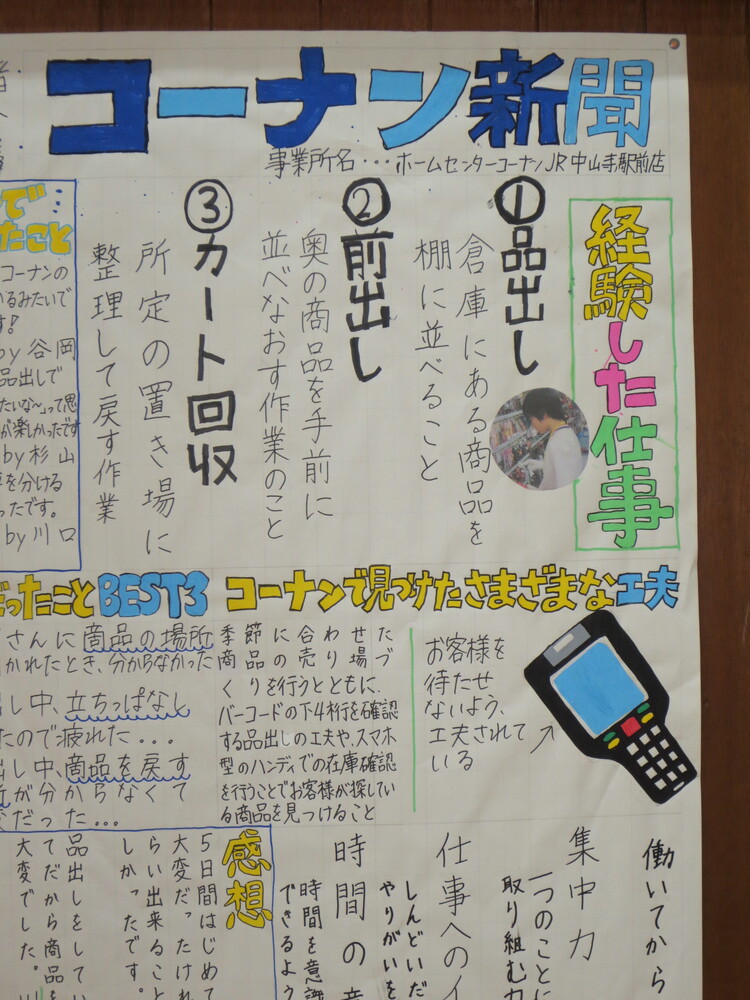 コーナン新聞
事業所名・・・ホームセンターコーナンJR中山寺駅前店
経験した仕事
①品出し
倉庫にある商品を
棚に並べること
②前出し
奥の商品を手前に
並べなおす作業のこと
③カート回収
所定の置き場に
整理して戻す作業
で…
たこと
コーナンの
いるみたいで
す!
by谷岡
品出しで
たいな~」って思
が楽しかったです
by杉山
を分ける
ったです。
by川口
コーナンで見つけたさまざまな工夫
お客様を
待たせ
ないよう、
工夫されて
いる
季節に合わせた
商品の売り場づ
くりを行うとともに、
バーコードの下4桁を確認
する品出しの工夫や、スマホ
型のハンディでの在庫確認
を行うことでお客様が探してい
る商品を見つけること
だったことBEST3
さんに商品の場所
かれたとき、分からなかった
し中、立ちっぱなし
たので疲れた...
出し中、商品を戻す
が分からなくて
変だった...
働いてから
集中力
一つのことに
取り組む力
仕事へのイ
しんどいだ
やりがいを
時間の
時間を意識
できるよう
感想
5日間はじめて
大変だったけれ
らい出来ること
しかったです。
品出しをしてい
てだから商品を
大変でした。